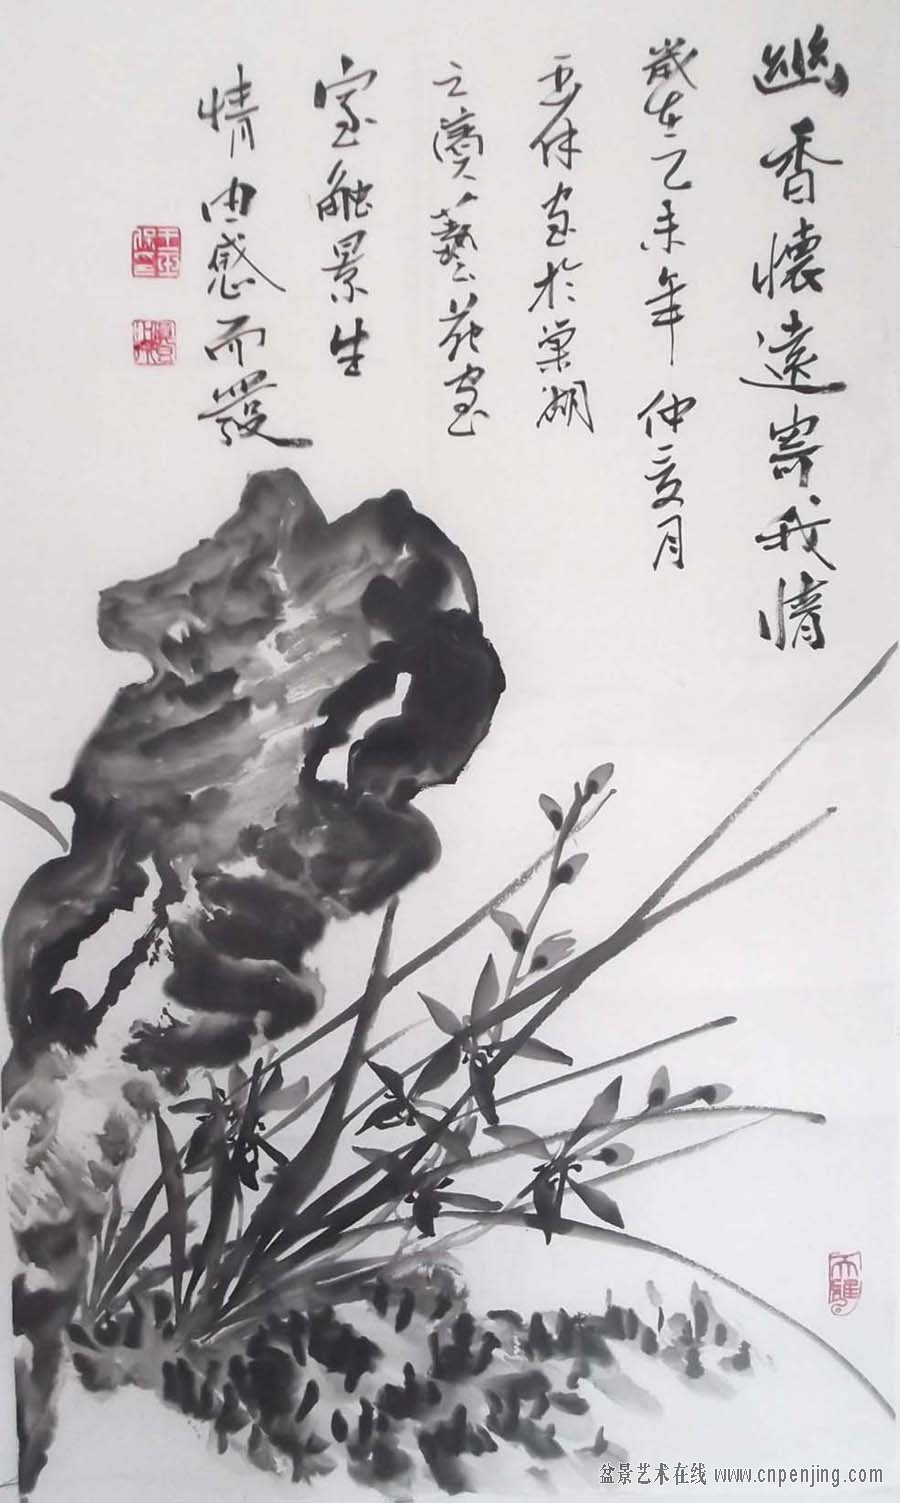 幽香懷遠寄我情
歲在乙未年仲夏月
亞保寫於巢湖
之蘭藝花室
室觸景生
情由感而發
盆景艺术在线 www.cnpenjing.com